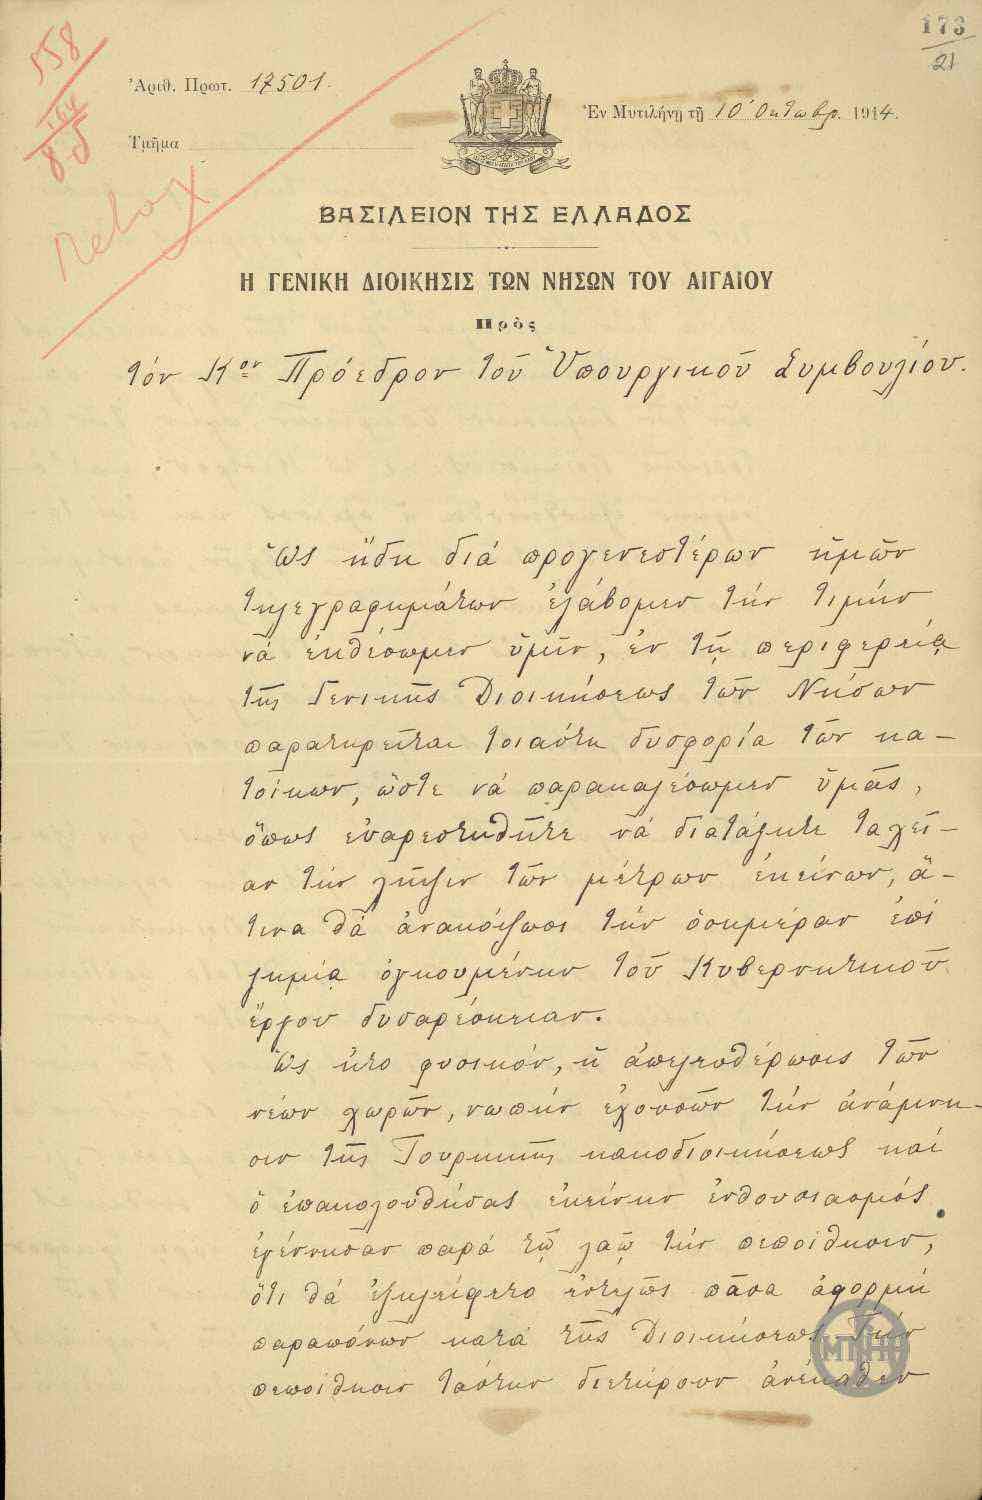 173
21
558
Ἀριθ. Πρωτ. 17501.
Ἐν Μυτιλήνῃ τῇ 10 Ὀκτωβρ. 1914.
Τμῆμα
ΒΑΣΙΛΕΙΟΝ ΤΗΣ ΕΛΛΑΔΟΣ
Η ΓΕΝΙΚΗ ΔΙΟΙΚΗΣΙΣ ΤΩΝ ΝΗΣΩΝ ΤΟΥ ΑΙΓΑΙΟΥ
Πρὸς
τόν Κον Πρόεδρον τοῦ Ὑπουργικοῦ Συμβουλίου.
Ὡς ἤδη διά προγενεστέρων ἡμῶν
τηλεγραφημάτων ἐλάβομεν τήν τιμήν
νά ἐκθέσωμεν ὑμῖν, ἐν τῇ περιφερείᾳ
τῆς Γενικῆς Διοικήσεως τῶν Νήσων
παρατηρεῖται τοιαύτη δυσφορία τῶν κα-
τοίκων, ὥστε νά παρακαλέσωμεν ὑμᾶς,
ὅπως εὐαρεστηθῆτε νά διατάξητε ταχεῖ-
αν τήν λῆψιν τῶν μέτρων ἐκείνων, ἅ-
τινα θά ἀνακόψωσι τήν ὁσημέραι ἐπί
ζημίᾳ ὀγκουμένην τοῦ Κυβερνητικοῦ
ἔργου δυσαρέσκειαν.
Ὡς ἦτο φυσικόν, ἡ ἀπελευθέρωσις τῶν
νέων χωρῶν, νωπήν ἐχουσῶν τήν ἀνάμνη-
σιν τῆς Τουρκικῆς κακοδιοικήσεως καί
ὁ ἐπακολουθήσας ἐκείνην ἐνθουσιασμός
ἐγέννησαν παρά τῷ λαῷ τήν πεποίθησιν,
ὅτι θά ἐξηλείφετο ἐντελῶς πᾶσα ἀφορμή
παραπόνων κατά τῆς Διοικήσεως. Τήν
πεποίθησιν ταύτην διετήρουν ἀνέκαθεν
ΜΠΗΑ